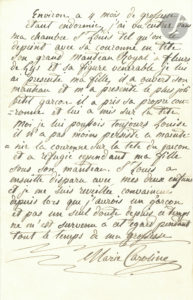 Environ a 4 mois de grossesse
étant endormie, j'ai vu entrer dans
ma chambre St Louis tel qu'on le
dépeint avec sa couronne en tête
son grand manteau Royal à fleurs
de Lys et sa figure vénérable je lui
ai présenté ma fille, il a ouvert son
manteau et m'a présenté le plus joli
petit garçon il a pris sa propre couronne
et lui a mis sur la tête
Moi je lui poussois toujours Louise
il m'a pas moins persisté a maintenir
la couronne sur la tête du garçon
et a réfugié cependant ma fille
sous son manteau. St Louis a
ensuite disparu avec mes deux enfans
et je me suis reveillée convaincue
depuis lors que j'aurois un garçon
et pas un seul doute depuis ce temps
ne m'est survenu a cet égard pendant
tout le temps de ma grossesse
Marie Caroline